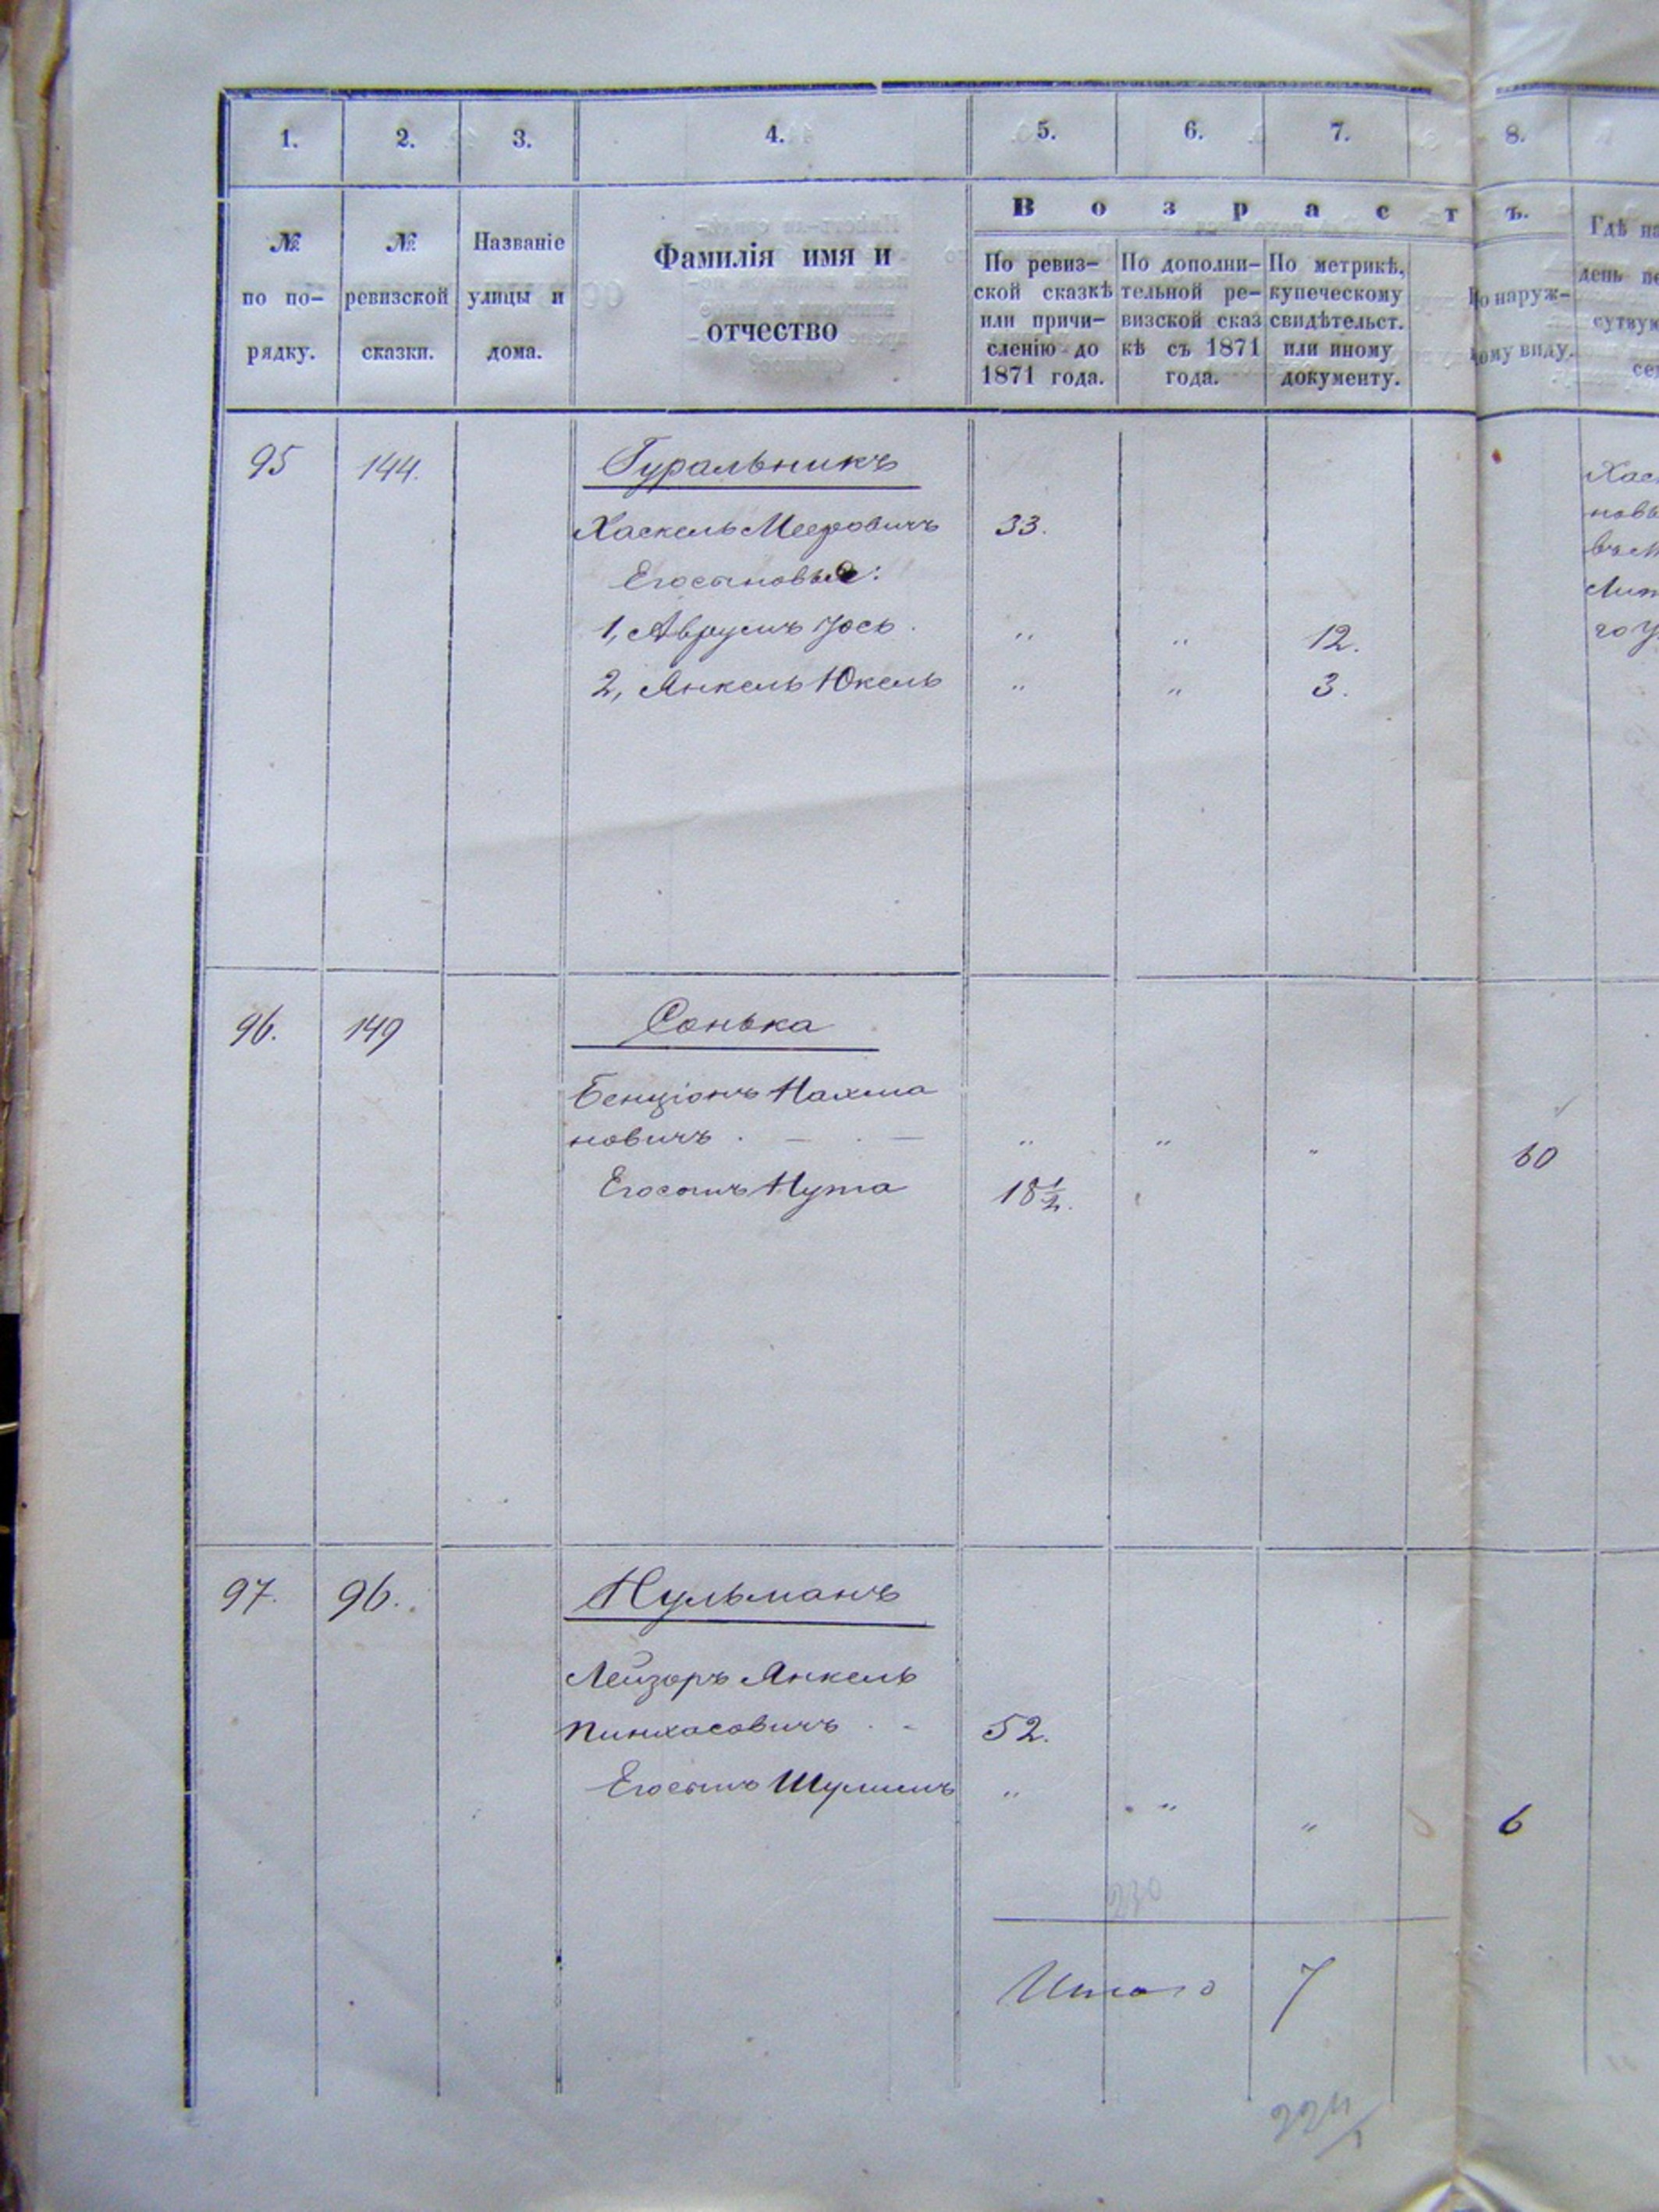 1. 2. 3. 4. 5. 6. 7. 8.
В о з р а с т ъ.
№ по по-рядку.
№ ревизской сказки.
Названіе улицы и дома.
Фамилія имя и
отчество
По ревиз-
ской сказкѣ
или причи-
сленію до
1871 года.
По дополни-
тельной ре-
визской сказ
кѣ съ 1871
года.
По метрикѣ,
купеческому
свидѣтельст.
или иному
документу.
По наруж-
ному виду.
Гдѣ на
день пе
сутвую
сем
95 144. Гуральникъ
Хаскель Мееровичъ 33.
Его сыновья:
1, Аврумъ Іось. " " 12.
2, Янкель Юкель " " 3.
Хас
новь
въ М
Лит
го У
96. 149 Сонька
Бенціонъ Нахма
новичъ . — . — " " " 60
Его сынъ Нута 18½.
97. 96. Нульманъ
Лейзоръ Янкель
Пинхасовичъ . - 52.
Его сынъ Шулимъ " " " 6
Итого 7